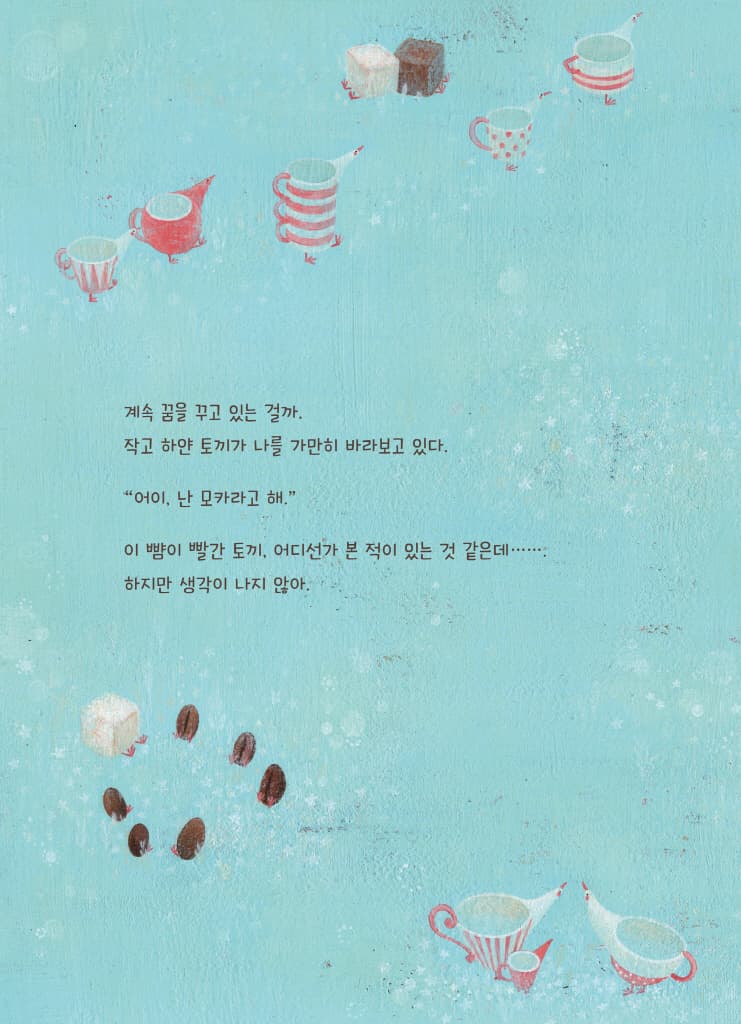 계속 꿈을 꾸고 있는 걸까.
작고 하얀 토끼가 나를 가만히 바라보고 있다.
“어이, 난 모카라고 해.”
이 뺨이 빨간 토끼, 어디선가 본 적이 있는 것 같은데…….
하지만 생각이 나지 않아.